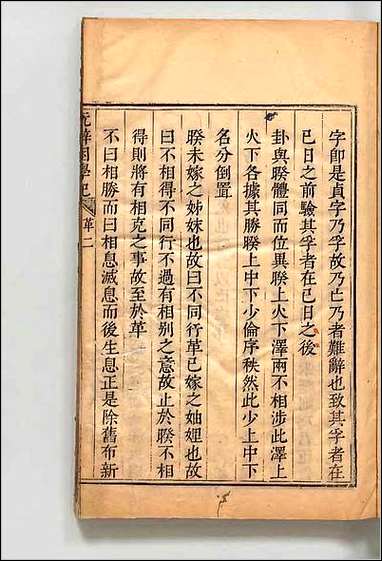 字即是貞字乃孚故乃亡乃者難辭也致其孚者在
已日之前驗其孚者在已日之後
卦與睽體同而位異睽上火下澤兩不相涉此澤上
火下各據其勝睽上中下少倫序秩然此少上中下
名分倒置
睽未嫁之姊妹也故曰不同行革已嫁之妯娌也故
曰不相得不同行不過有相别之意故止於睽不相
得則將有相克之事故至於革
不曰相勝而曰相息滅息而後生息正是除舊布新
革二